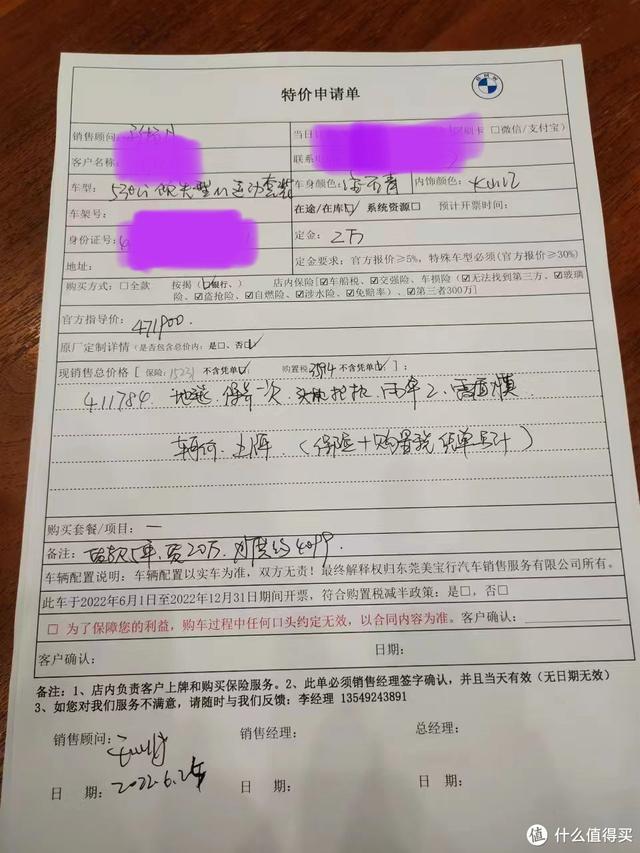 特价申请单
销售顾问：
当日 刷卡 □微信/支付宝）
客户名称：
联系
车型： 530Li 领先型M运动套装
车身颜色： 内饰颜色：
车架号：
在途/在库☑ 系统资源□ 预计开票时间：
身份证号：
定金： 2万
地址：
定金要求：官方报价≥5%，特殊车型必须（官方报价≥30%）
购买方式：□全款 按揭（☑银行、） 店内保险[☑车船税、☑交强险、车损险（☑无法找到第三方、☑玻璃
险、☑盗抢险、☑自燃险、☑涉水险、☑免赔率）、☑第三者300万]
官方指导价： 471900.
原厂定制详情（是否包含总价内：是□，否☑
现销售总价格[ 保险：15231 不含凭单☑ 购置税 不含凭单☑ ]：
411784. 保养一次. 雨伞2.
上牌 （保险+购置税凭单另计）
购买套餐/项目： 一
备注： 贷款5年. 贷20万. 月供约4099.
车辆配置说明：车辆配置以实车为准，双方无责！最终解释权归东莞美宝行汽车销售服务有限公司所有。
此车于2022年6月1日至2022年12月31日期间开票，符合购置税减半政策：是□，否□
□ 为了保障您的利益，购车过程中任何口头约定无效，以合同内容为准。 客户确认：
客户确认： 日期：
备注：1、店内负责客户上牌和购买保险服务。2、此单必须销售经理签字确认，并且当天有效（无日期无效）
3、如您对我们服务不满意，请随时与我们反馈：李经理 13549243891
销售顾问： 销售经理： 总经理：
日 期： 2022.6.25 日 期： 日 期：
值 什么值得买